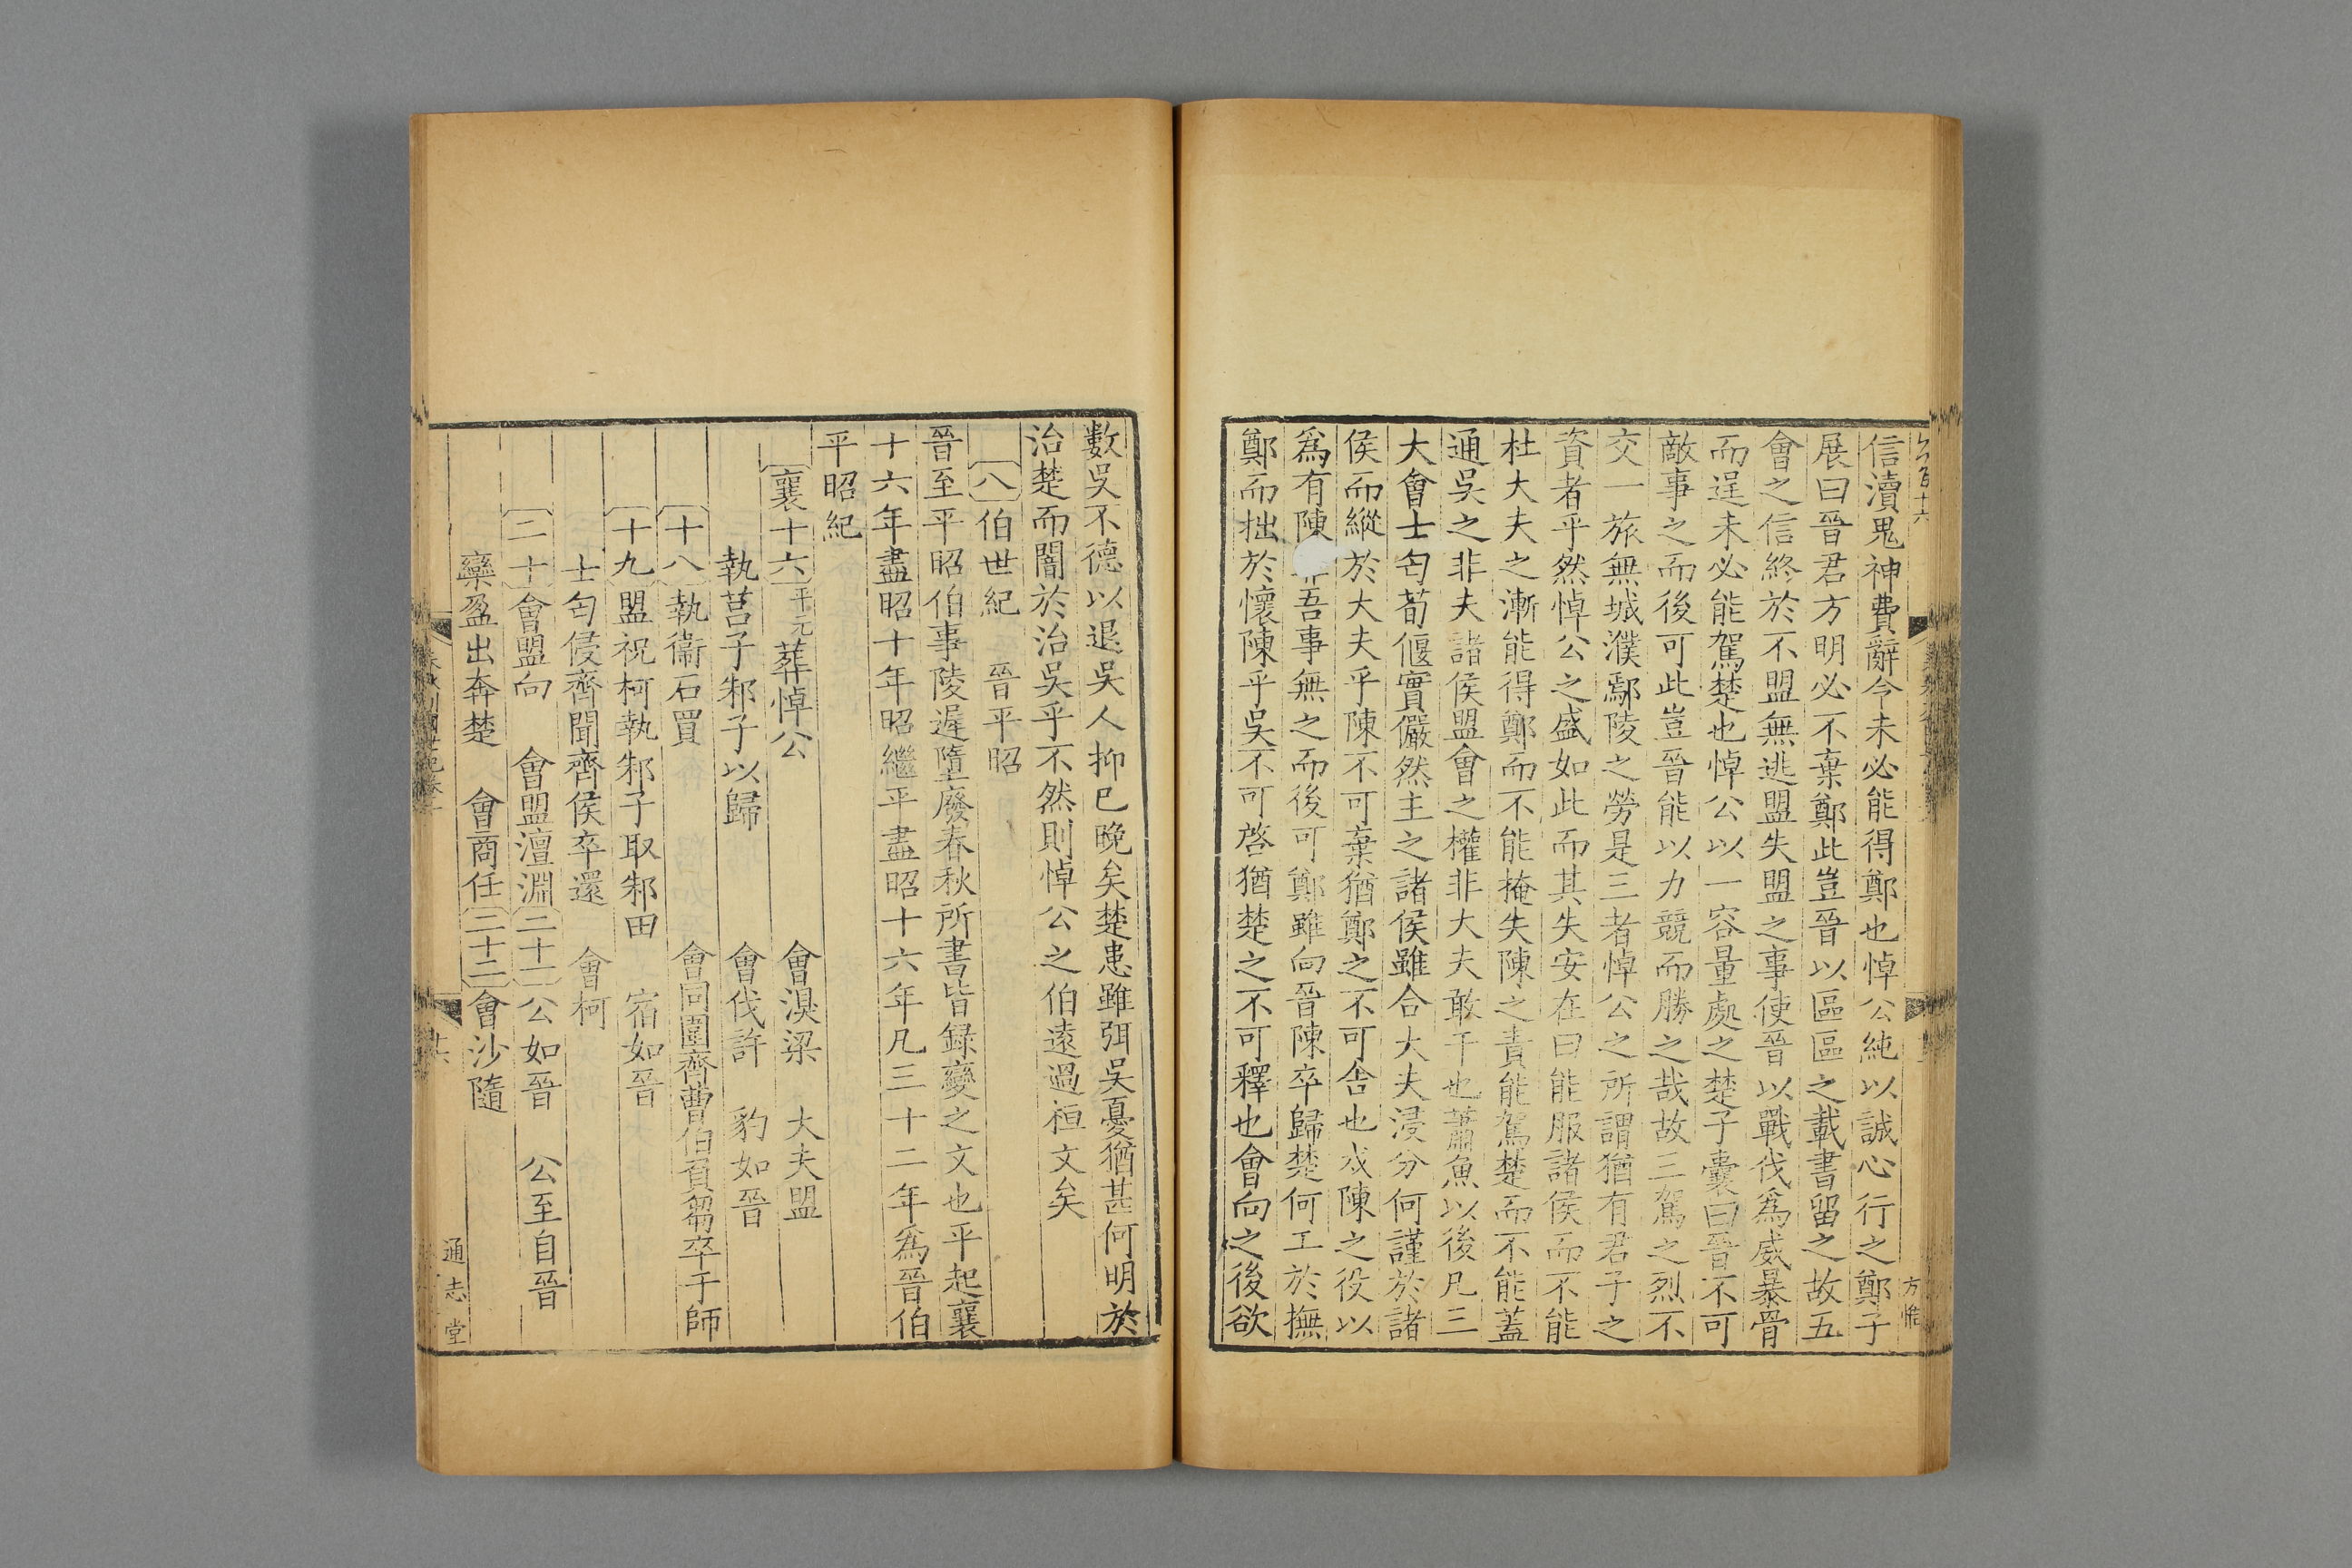 信瀆鬼神費辭今未必能得鄭也悼公純以誠心行之鄭子
展曰晉君方明必不棄鄭此豈晉以區區之載書留之故五
會之信終於不盟無逃盟失盟之事使晉以戰伐爲威暴骨
而逞未必能駕楚也悼公以一容量處之楚子囊曰晉不可
敵事之而後可此豈晉能以力競而勝之哉故三駕之烈不
交一旅無城濮鄢陵之勞是三者悼公之所謂猶有君子之
資者乎然悼公之盛如此而其失安在曰能服諸侯而不能
杜大夫之漸能得鄭而不能掩失陳之責能駕楚而不能蓋
通吳之非夫諸侯盟會之權非大夫敢干也蕭魚以後凡三
大會士匄荀偃實儼然主之諸侯雖合大夫浸分何謹於諸
侯而縱於大夫乎陳不可棄猶鄭之不可舍也戍陳之役以
爲有陳吾事無之而後可鄭雖向晉陳卒歸楚何工於撫
鄭而拙於懷陳乎吳不可啓猶楚之不可釋也會向之後欲
方惟
數吳不德以退吳人抑已晚矣楚患雖弭吳憂猶甚何明於
治楚而闇於治吳乎不然則悼公之伯遠過桓文矣
八 伯世紀 晉平昭
晉至平昭伯事陵遲隳廢春秋所書皆録變之文也平起襄
十六年盡昭十年昭繼平盡昭十六年凡三十二年爲晉伯
平昭紀
襄十六 平元 葬悼公 會湨梁 大夫盟
執莒子邾子以歸 會伐許 豹如晉
十八 執衞石買 會同圍齊曹伯負芻卒于師
十九 盟祝柯執邾子取邾田 宿如晉
士匄侵齊聞齊侯卒還 會柯
二十 會盟向 會盟澶淵 二十一 公如晉 公至自晉
欒盈出奔楚 會商任 二十二 會沙隨
通志堂